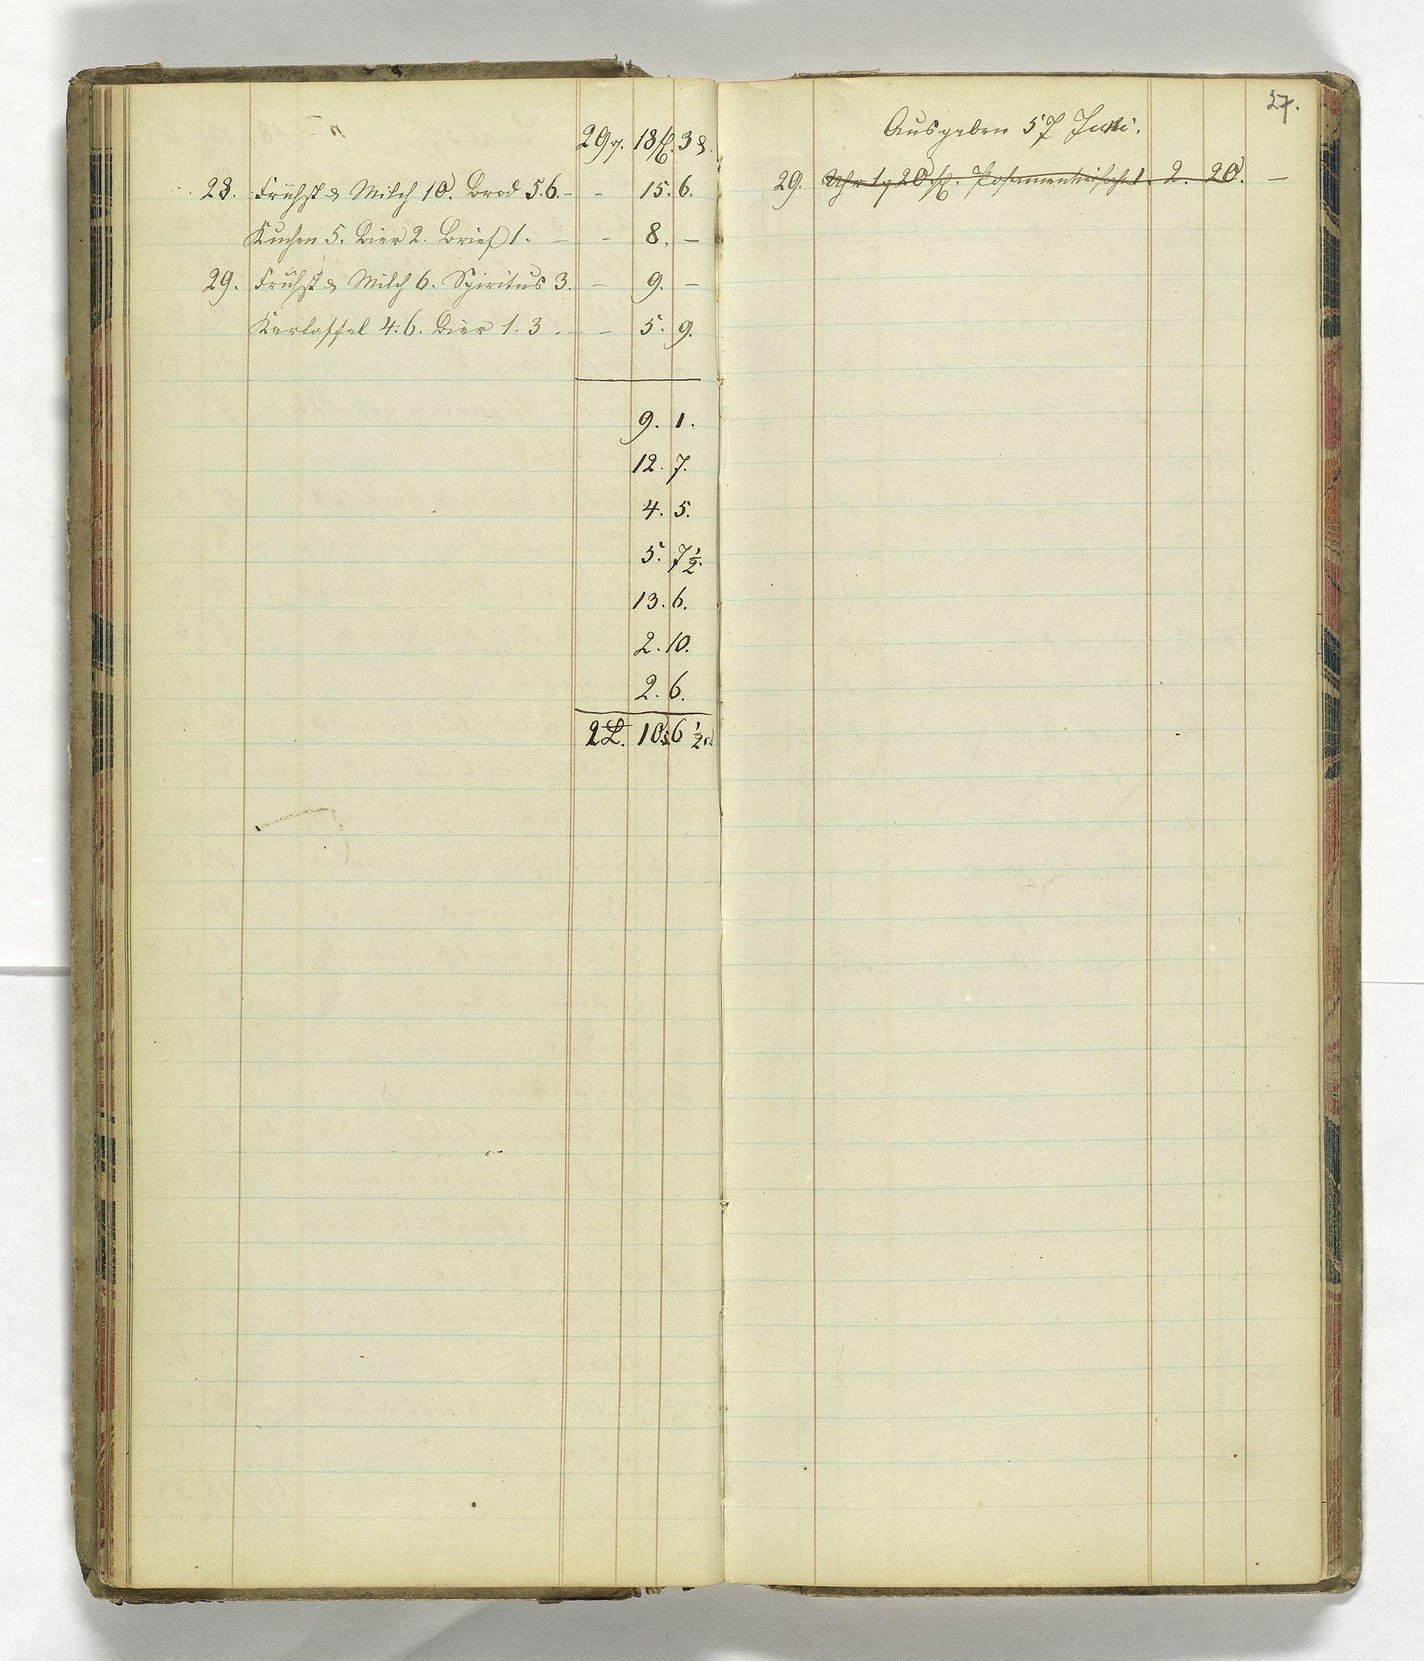 29 18 3
28. Frühst & Milch 10. Brod 5.6. - - 15. 6.
Kuchen 5. Bier 2. Brief 1. - - 8. -
29. Frühst & Milch 6. Spiritus 3. - 9. -
Kartoffel 4.6. Bier 1.3. - - 5. 9.
9. 1.
12. 7.
4. 5.
5. 7 1/2.
13. 6.
2. 10.
2. 6.
2 £. 10s 6 1/2 d
27.
Ausgeben 57 Juni.
29. Uhr 20 1. 2. 20. -